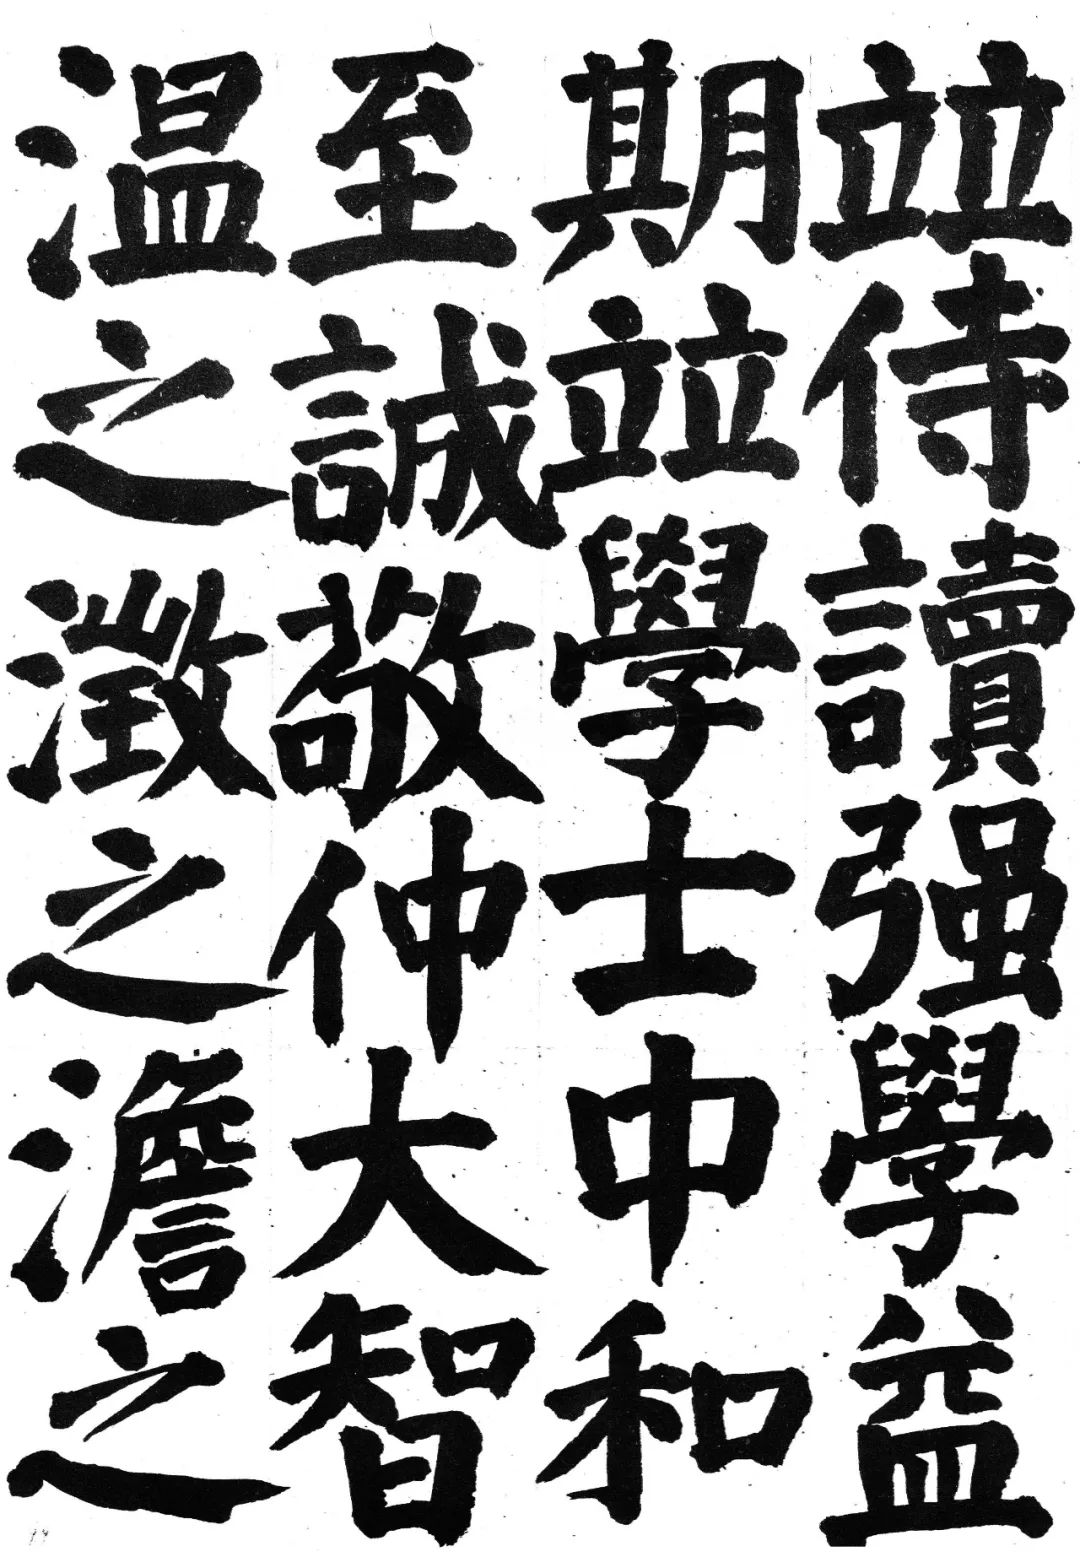 竝侍讀强學益
期竝學士中和
至誠敬仲大智
温之澂之澹之